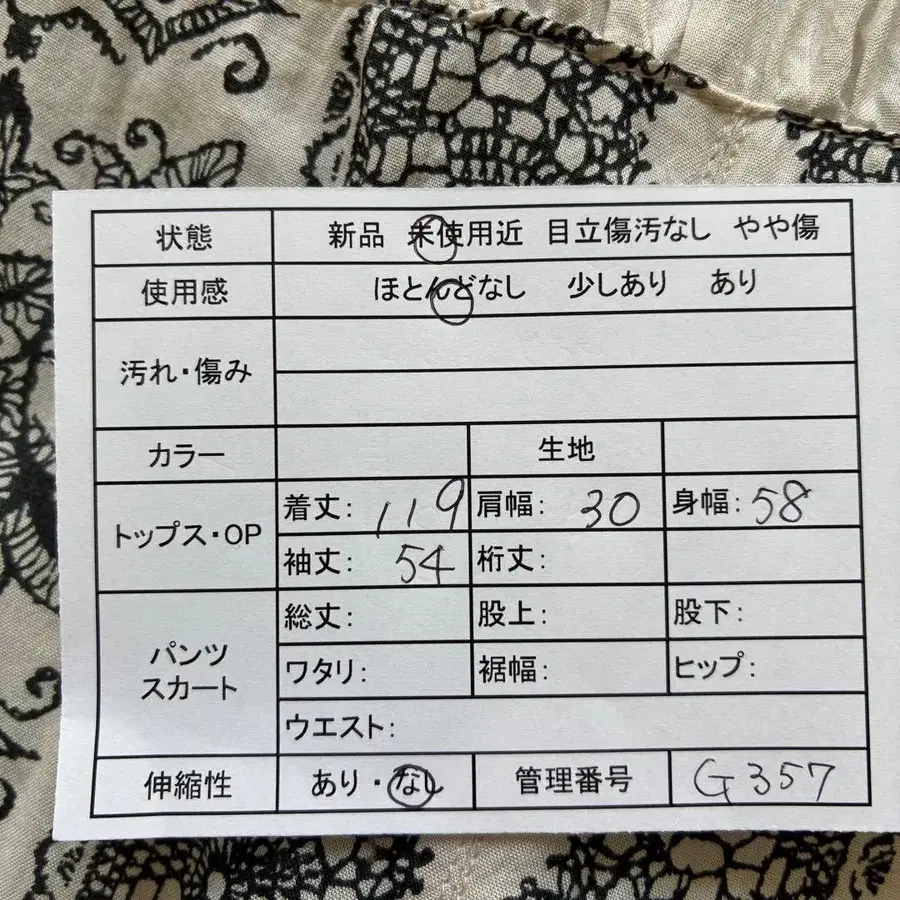 状態 新品 未使用近 目立傷汚なし やや傷
使用感 ほとんどなし 少しあり あり
汚れ・傷み
カラー 生地
トップス・OP
着丈: 119 肩幅: 30 身幅: 58
袖丈: 54 裄丈:
パンツ
スカート
総丈: 股上: 股下:
ワタリ: 裾幅: ヒップ:
ウエスト:
伸縮性 あり・なし 管理番号 G357